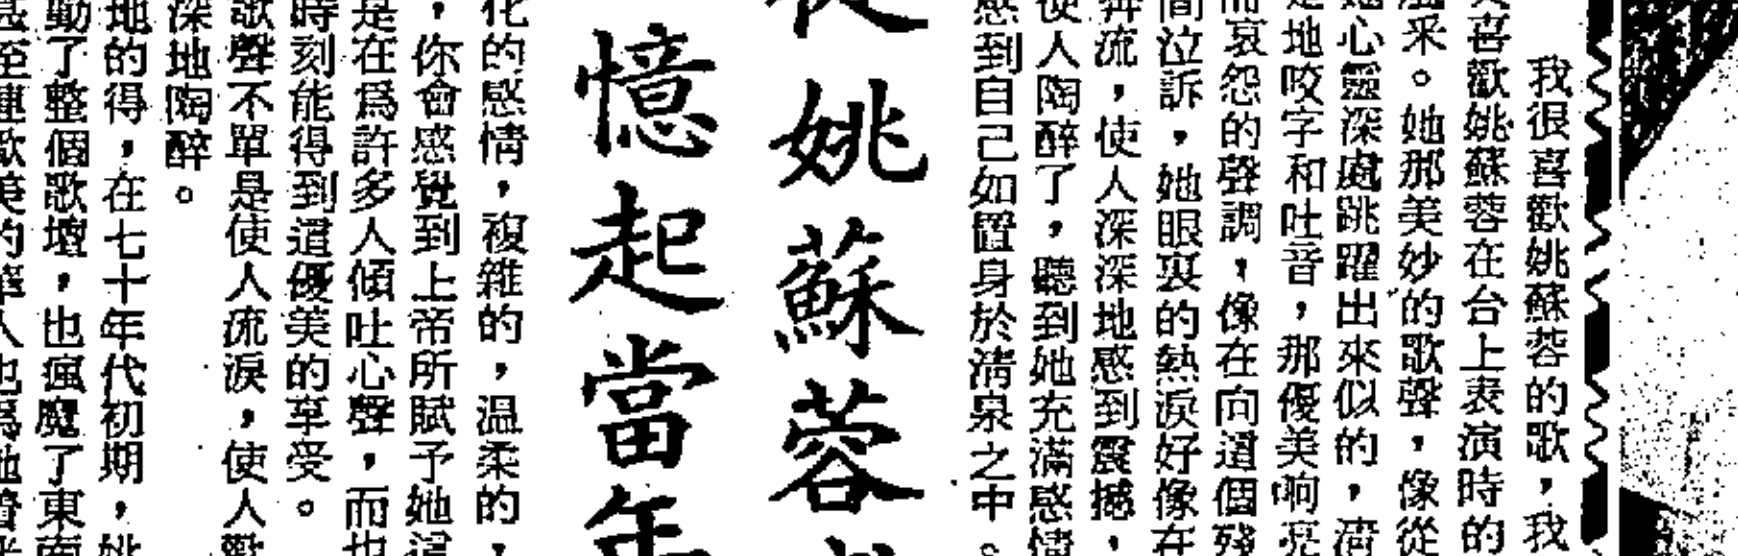 我很喜歡姚蘇蓉的歌，我
喜歡姚蘇蓉在台上表演時的
采。她那美妙的歌聲，像從
心靈深處跳躍出來似的，清
地咬字和吐音，那優美响亮
哀怨的聲調，像在向這個殘
間泣訴，她眼裏的熱淚好像在
奔流，使人深深地感到震撼，
使人陶醉了，聽到她充滿感情
感到自己如置身於清泉之中。
從姚蘇蓉
憶起當年
化的感情，複雜的，温柔的，
，你會感覺到上帝所賦予她這
是在爲許多人傾吐心聲，而也
時刻能得到這優美的享受。
歌聲不單是使人流淚，使人歡
深地陶醉。
地的得，在七十年代初期，姚
動了整個歌壇，也瘋魔了東南
甚至連歐美的華人也爲她